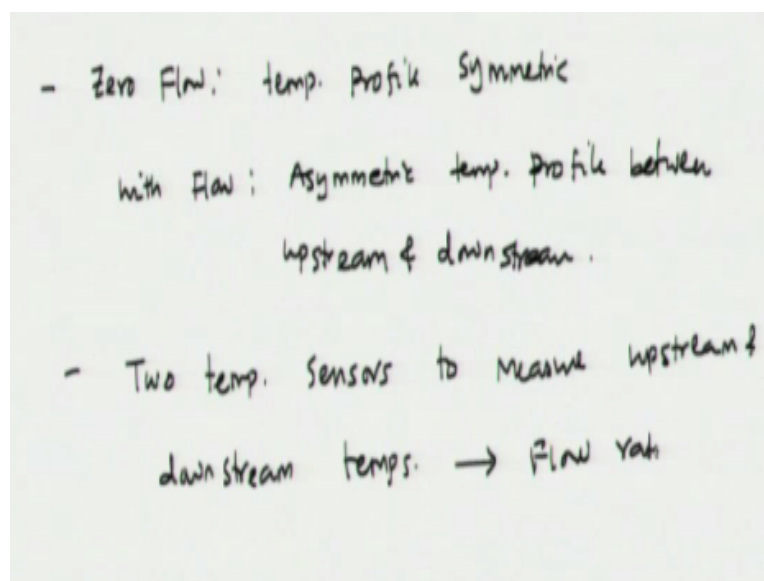 - Zero Flow: temp. Profile Symmetric
with Flow: Asymmetric temp. Profile between
upstream & downstream.
- Two temp. Sensors to Measure upstream &
downstream temps. → Flow rate